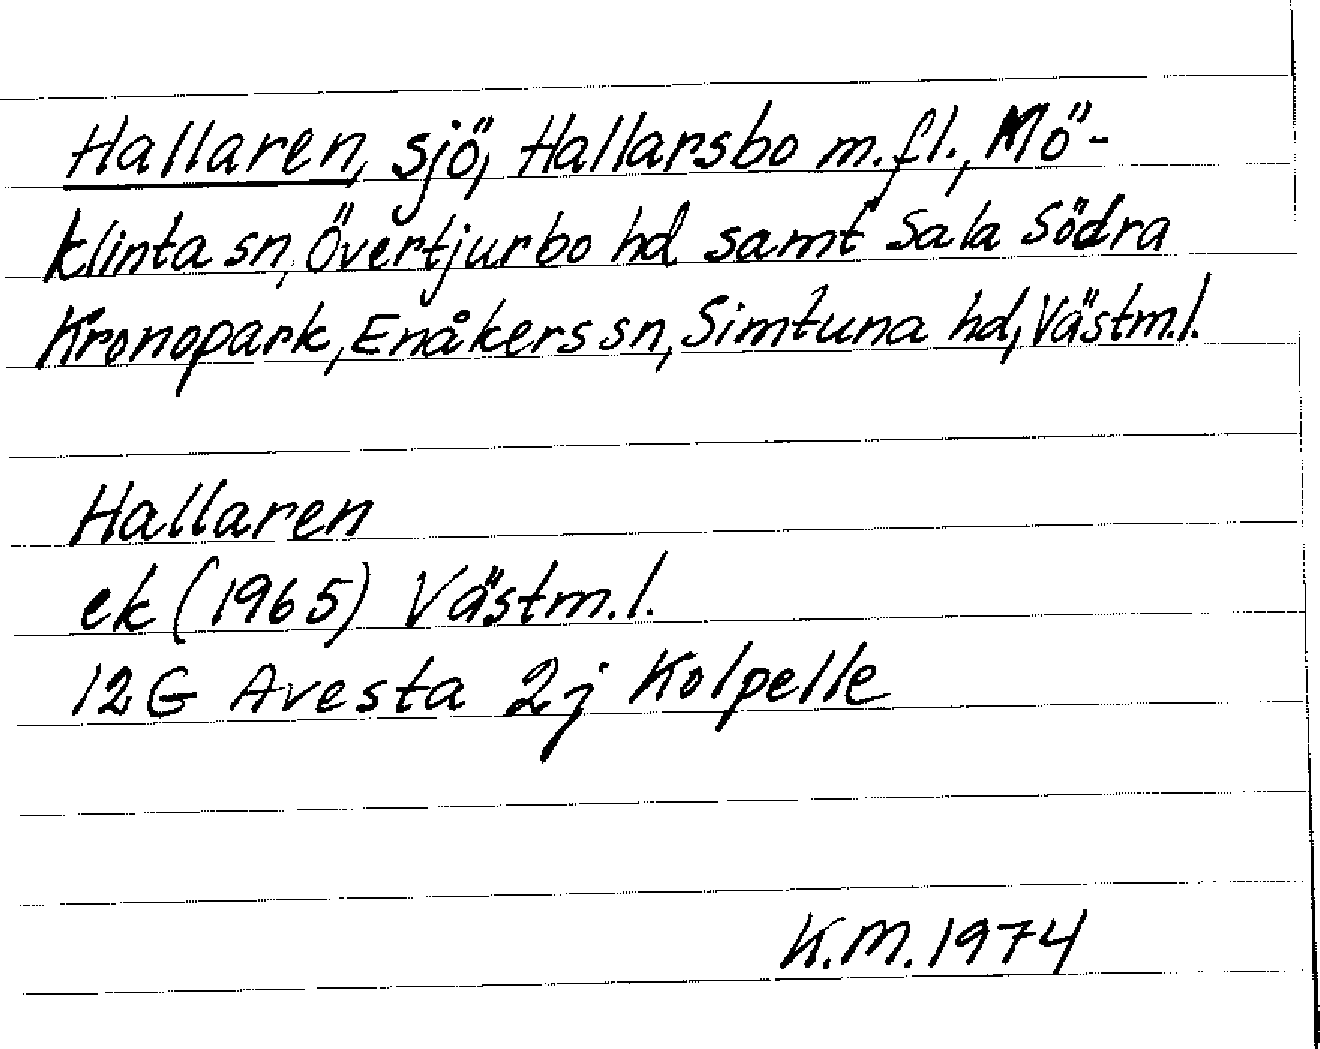 Hallaren, sjö, Hallarsbo m.fl., Mö-
klinta sn, Övertjurbo hd samt Sala Södra
Kronopark, Enåkers sn, Simtuna hd, Västm.l.
Hallaren
ek (1965) Västm.l.
12G Avesta 2j Kolpelle
K.M. 1974